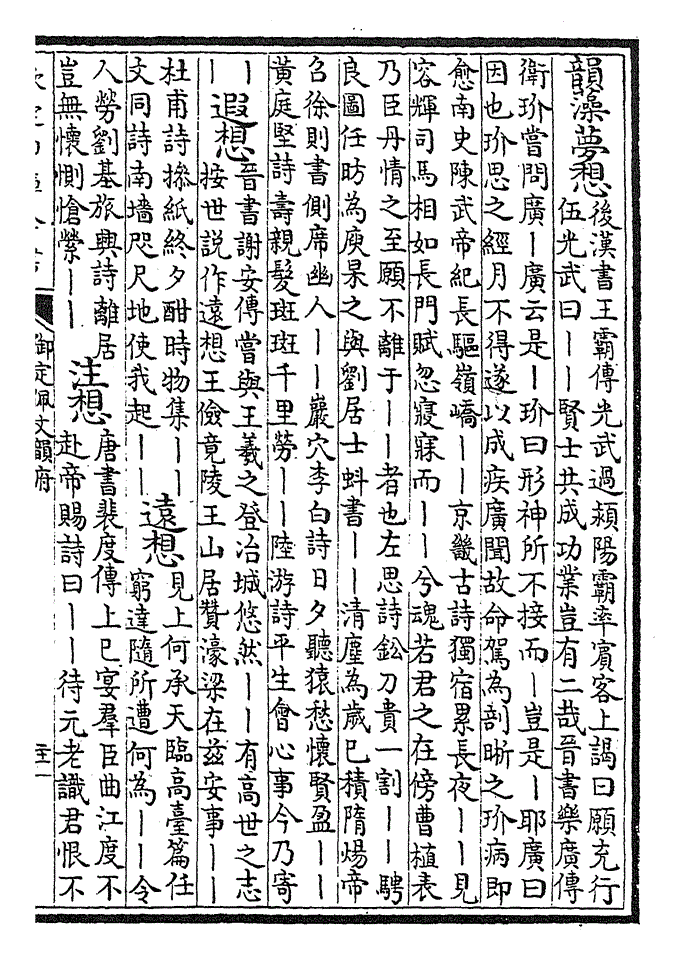 韻藻夢想
後漢書王霸傳光武過潁陽霸率賓客上謁曰願充行
伍光武曰丨丨賢士共成功業豈有二哉晉書樂廣傳
衛玠嘗問廣丨廣云是丨玠曰形神所不接而丨豈是丨耶廣曰
因也玠思之經月不得遂以成疾廣聞故命駕為剖晰之玠病即
愈南史陳武帝紀長驅嶺嶠丨丨京畿古詩獨宿累長夜丨丨見
容輝司馬相如長門賦忽寢寐而丨丨兮魂若君之在傍曹植表
乃臣丹情之至願不離于丨丨者也左思詩鈆刀貴一割丨丨騁
良圖任昉為庾杲之與劉居士蚪書丨丨清塵為歲已積隋煬帝
召徐則書側席幽人丨丨巖穴李白詩日夕聽猿愁懷賢盈丨丨
黃庭堅詩壽親髮斑斑千里勞丨丨陸游詩平生會心事今乃寄
丨
丨
遐想
晉書謝安傳嘗與王羲之登冶城悠然丨丨有高世之志
按世說作遠想王儉竟陵王山居贊濠梁在兹安事丨丨
杜甫詩摻紙終夕酣時物集丨丨
文同詩南墻咫尺地使我起丨丨
遠想
見上何承天臨高臺篇任
窮達隨所遭何為丨丨令
人勞劉基旅興詩離居
豈無懷惻愴縈丨丨
注想
唐書裴度傳上巳宴羣臣曲江度不
赴帝賜詩曰丨丨待元老識君恨不
御定佩文韻府